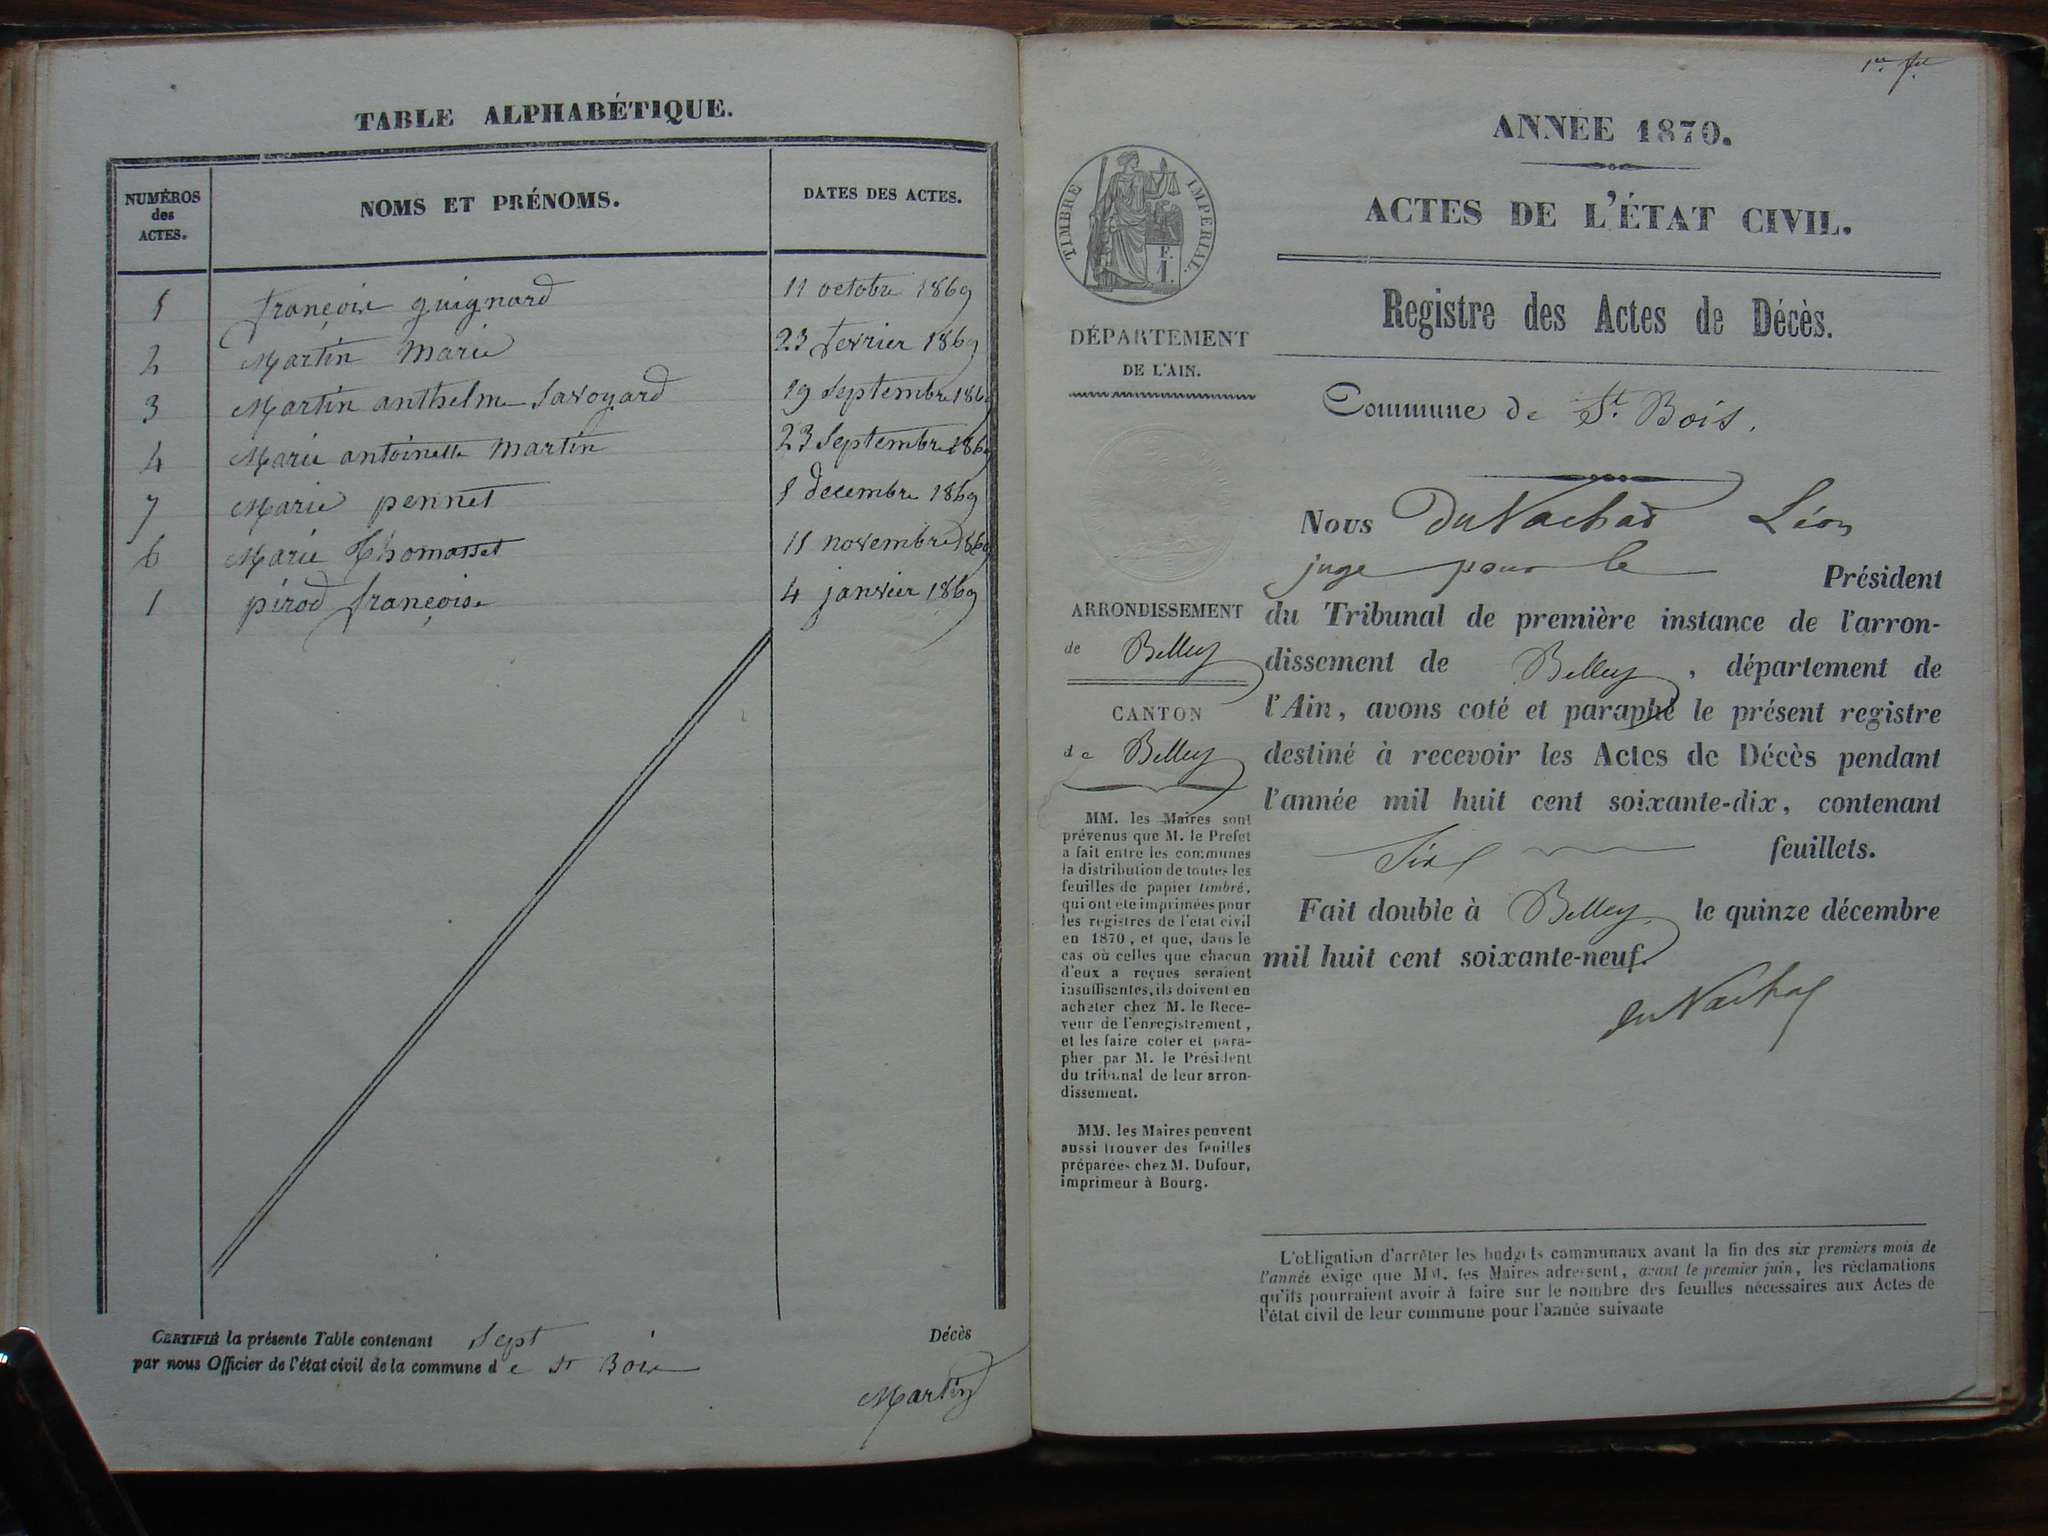 TABLE ALPHABÉTIQUE.
NUMÉROS des ACTES.
NOMS ET PRÉNOMS.
DATES DES ACTES.
5 françoise guignard 11 octobre 1869
2 Martin Marie 23 fevrier 1869
3 Martin anthelme Savoyard 19 Septembre 1869
4 Marie antoinette Martin 23 Septembre 1869
7 Marie pennet 8 decembre 1869
6 Marie Thomasset 11 novembre 1869
1 pirod françoise 4 janvier 1869
CERTIFIÉ la présente Table contenant Sept Décès
par nous Officier de l'état civil de la commune d e St Bois
Martin
1er f.et
ANNÉE 1870.
ACTES DE L'ÉTAT CIVIL.
Registre des Actes de Décès.
Commune de St. Bois.
TIMBRE IMPERIAL.
F.
1.
DÉPARTEMENT
DE L'AIN.
ARRONDISSEMENT
de Belley
CANTON
de Belley
MM. les Maires sont
prévenus que M. le Prefet
a fait entre les communes
la distribution de toutes les
feuilles de papier timbré,
qui ont été imprimées pour
les registres de l'état civil
en 1870, et que, dans le
cas où celles que chacun
d'eux a reçues seraient
insuffisantes, ils doivent en
acheter chez M. le Rece-
veur de l'enregistrement,
et les faire coter et para-
pher par M. le Président
du tribunal de leur arron-
dissement.
MM. les Maires peuvent
aussi trouver des feuilles
préparées chez M. Dufour,
imprimeur à Bourg.
Nous Du Nachat Léon
juge pour le Président
du Tribunal de première instance de l'arron-
dissement de Belley, département de
l'Ain, avons coté et paraphé le présent registre
destiné à recevoir les Actes de Décès pendant
l'année mil huit cent soixante-dix, contenant
Six feuillets.
Fait double à Belley, le quinze décembre
mil huit cent soixante-neuf.
du Nachat
L'obligation d'arrêter les budgets communaux avant la fin des six premiers mois de
l'année exige que MM. les Maires adressent, avant le premier juin, les réclamations
qu'ils pourraient avoir à faire sur le nombre des feuilles nécessaires aux Actes de
l'état civil de leur commune pour l'année suivante